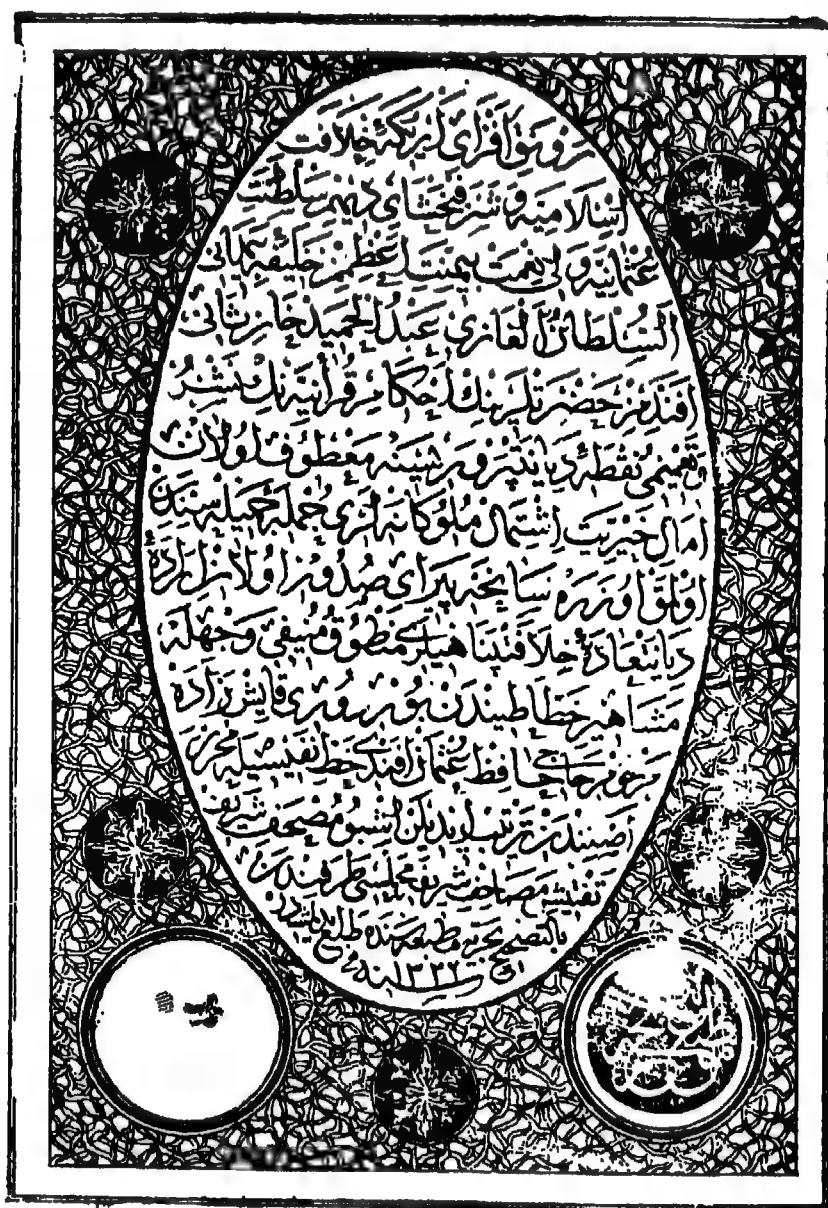 رونق افزای اریکهٔ خلافت
اسلامیه و شرفبخشای دیهیم سلطنت
عثمانیه ولی نعمت بیمنت اعظم خلیفهٔ
السلطان الغازی عبد الحمید خان ثانی
افندمز حضرتلرینك احکام قرآنیه نك نشر
نقطهٔ دیانتپرورسینه معطوف اولان
امال خیریت اشتمال ملوکانه لری جملهٔ جمیله سندن
اولمق اوزره سانحه پیرای صدور اولان ارادهٔ
خلافتپناهیلری منطوق منیفی وجهله
مشاهیر خطاطیندن بوردوری قایش زاده
مرحوم حاجی حافظ عثمان افندی خط نفیسیله محرر
ترتیب ایدیلن اشبو مصحف شریف
تفتیش مصاحف شریفه مجلسی طرفندن
بالتصحیح بحریه مطبعه سنده طبع
سنه